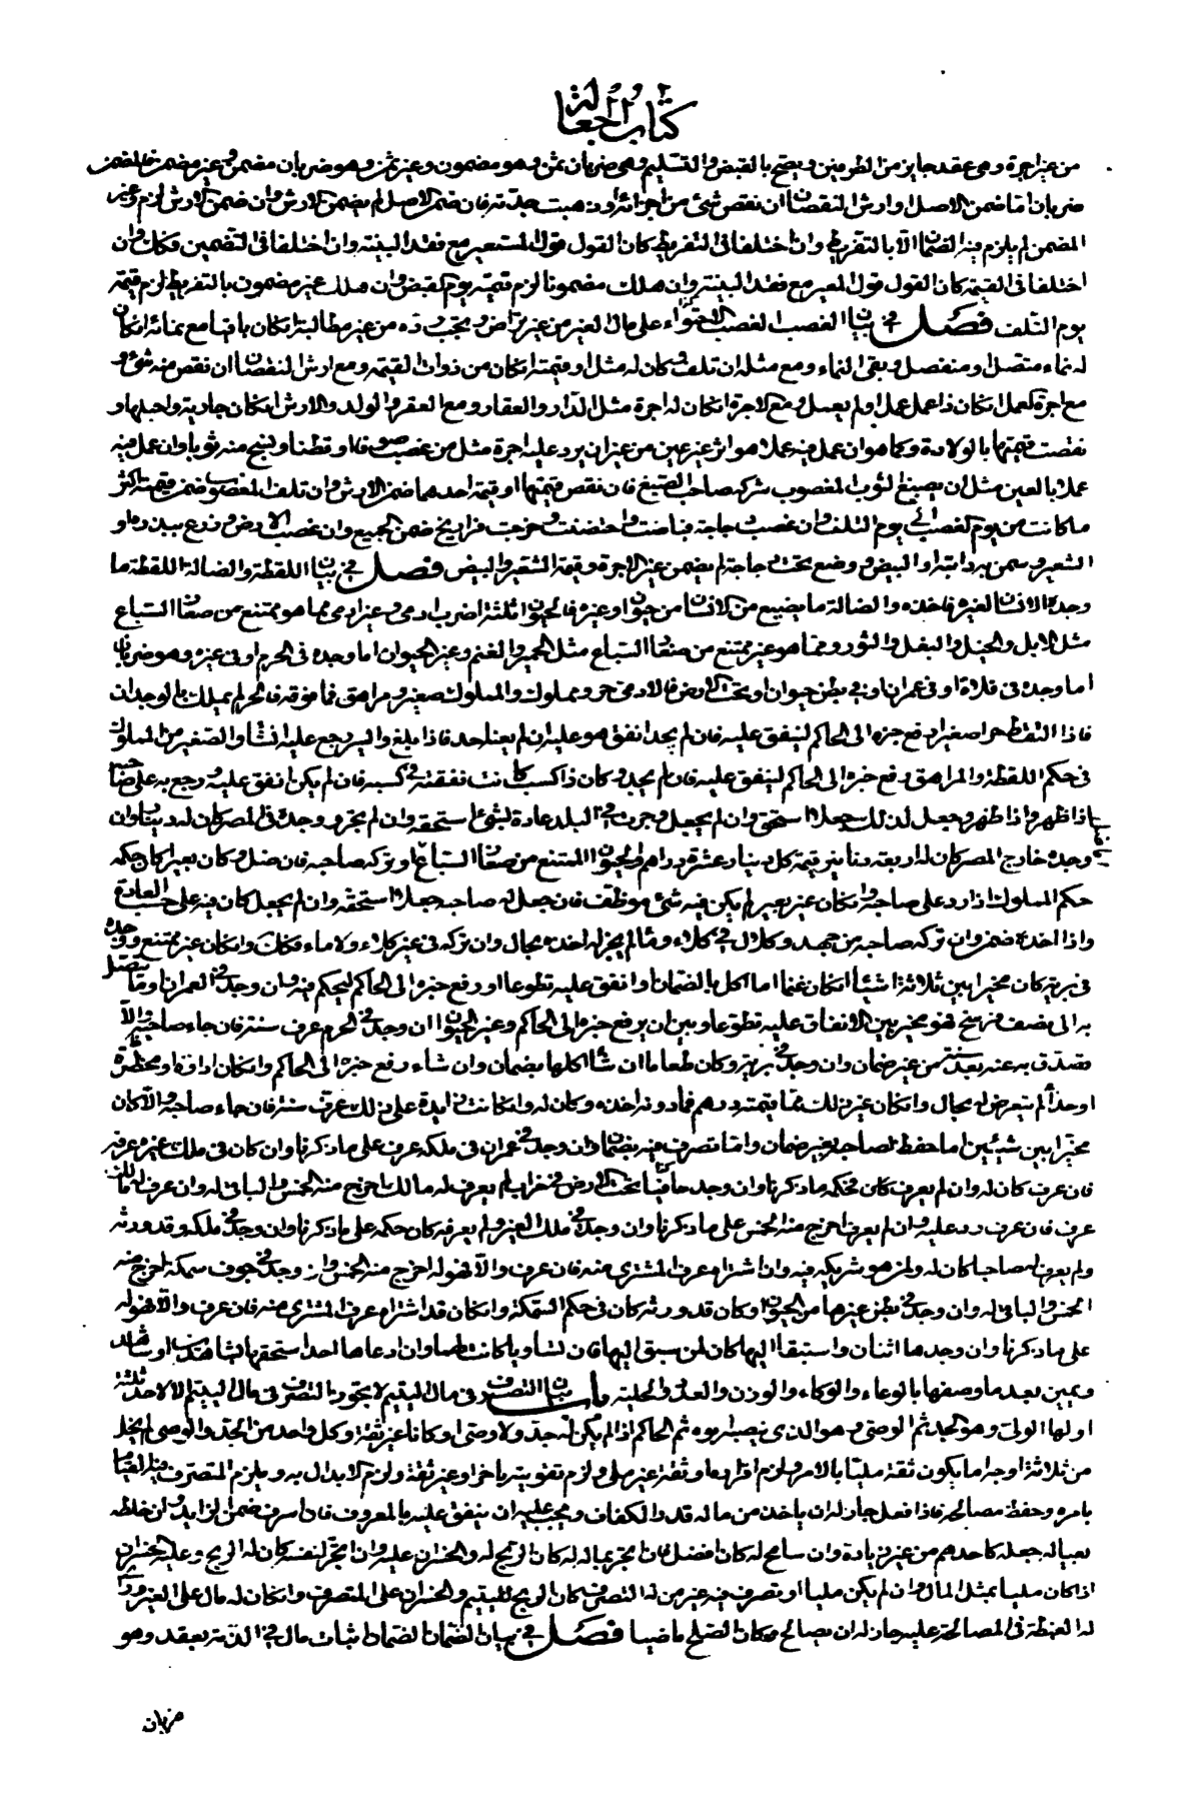 كتاب الجعالة
من غير اجرة وهي عقد جايز من الطرفين ويصح بالقبض والتسليم وهي ضربان ثمن وهو مضمون وغير ثمن وهو ضربان مضمن وغير مضمن فالمضمن
ضربان اما ضمن الاصل وارش النقصان ان نقص شئ من اجزائه او ذهبت جدته فان ضمن الاصل لم يضمن الارش وان ضمن الارش لزم وغير
المضمن لم يلزم فيه الضمان الا بالتفريط وان اختلفا في التفريط كان القول قول المستعير مع فقد البينة وان اختلفا في التضمين فكذلك وان
اختلفا في القيمة كان القول قول المعير مع فقد البينة وان هلك مضمونا لزم قيمته يوم القبض وان هلك غير مضمون بالتفريط لزم قيمته
يوم التلف فصل في بيان الغصب الغصب الاحتواء على مال الغير من غير تراض ويجب رده من غير مطالبة ان كان باقيا مع نمائه ان كان
له نماء متصل او منفصل وبقي النماء ومع مثله ان تلف وكان له مثل او قيمته ان كان من ذوات القيمة ومع ارش النقصان ان نقص منه شئ و
مع اجرة العمل ان كان ذا عمل عمل او لم يعمل ومع الاجرة ان كان له اجرة مثل الدار والعقار ومع العقر والولد والارش ان كان جارية واحبلها و
نقصت قيمتها بالولادة وكما هو ان عمل فيه عملا هو اثر غير عين من غير ان يرد عليه اجرة مثل من غصب صوفا وقطنا ونسج منه ثوبا وان عمل فيه
عملا بالعين مثل ان يصبغ الثوب المغصوب شركه صاحب الصبغ فان نقص قيمتهما او قيمة احدهما ضمن الارش وان تلف المغصوب ضمن قيمته اكثر
ما كانت من يوم الغصب الى يوم التلف وان غصب دجاجة فباضت واحتضنت وخرجت فراريخ ضمن الجميع وان غصب الارض وزرع ببذره او
الشعير وسمن به دابته او البيض ووضع تحت دجاجة لم يضمن غير الاجرة وقيمة الشعير والبيض فصل في بيان اللقطة والضالة اللقطة ما
وجده الانسان لغيره فاخذه والضالة ما يضيع من الانسان من حيوان او غيره فالحيوان ثلثة اضرب ادمي وغير ادمي مما هو ممتنع من صغار السباع
مثل الابل والخيل والبغل والثور ومما هو غير ممتنع من صغار السباع مثل الحمير والغنم وغير الحيوان اما وجده في الحرم او في غيره وهو ضربان
اما وجده في فلاة او في عمران او في بطن حيوان او تحت الارض فالادمي حر ومملوك والمملوك صغير ومراهق فما فوقه فالحر لم يملك بالوجدان
فاذا التقط حرا صغيرا رفع خبره الى الحاكم لينفق عليه فان لم يجد انفق هو عليه ان لم يعنه احد فاذا بلغ وايسر رجع عليه ان شاء والصغير من المملوك
في حكم اللقطة والمراهق رفع خبره الى الحاكم لينفق عليه فان لم يجد وكان ذا كسب كانت نفقته في كسبه فان لم يكن انفق عليه ورجع به على صاحبه
اذا ظهر واذا ظهر وجعل لذلك جعلا استحق وان لم يجعل وجرت في البلد عادة لشئ استحقه وان لم يجر ووجده في المصر كان له دينار وان
وجده خارج المصر كان له اربعة دنانير قيمة كل دينار عشرة دراهم والحيوان الممتنع من صغار السباع او تركه صاحبه فان ضل وكان بعيرا كان حكمه
حكم المملوك اذا رد على صاحبه وان كان غير بعير لم يكن فيه شئ موظف فان جعل له صاحبه جعلا استحقه وان لم يجعل كان فيه على حسب العادة
واذا اخذه ضمن وان تركه صاحبه من جهد وكلال في كلاء وماء لم يجز له اخذه بحال وان تركه في غير كلاء ولا ماء فكذلك وان كان غير ممتنع ووجده
في برية كان مخيرا بين ثلاثة اشياء ان كان غنما اما اكل بالضمان او انفق عليه تطوعا او رفع خبره الى الحاكم ليحكم فيه وان وجد في العمران وما يتصل
به الى نصف فرسخ فهو مخير بين الانفاق عليه تطوعا وبين ان يرفع خبره الى الحاكم وغير الحيوان ان وجد في الحرم عرف سنة فان جاء صاحبه والا
تصدق به عنه بعد سنة من غير ضمان وان وجد في برية وكان طعاما ان شاء اكلها بضمان وان شاء رفع خبره الى الحاكم وان كان اداوة او مخصرة
او حذاء لم يتعرض له بحال وان كان غير ذلك مما قيمته درهم فما دونه اخذه وكان له وان كانت زايدة على ذلك عرف سنة فان جاء صاحبه والا كان
مخيرا بين شيئين اما حفظ لصاحبه بغير ضمان واما تصرف فيه بضمان وان وجد في عمران في ملكه عرف على ما ذكرنا وان كان في ملك غيره عرفه
فان عرف كان له وان لم يعرف كان حكمه ما ذكرنا وان وجد تحت الارض في خراب لم يعرف له مالك اخرج منه الخمس والباقي له وان عرف له مالك
عرف فان عرف رد عليه وان لم يعرف اخرج منه الخمس على ما ذكرنا وان وجد في ملك الغير ولم يعرفه كان حكمه على ما ذكرنا وان وجد في ملكه وقد ورثه
ولم يعرف له صاحبا كان له ولمن هو شريكه فيه وان اشتراه عرف المشتري منه فان عرف والا فهو له اخرج منه الخمس وان وجد في جوف سمكة اخرج منه
الخمس والباقي له وان وجد في بطن غيرها من الحيوان وكان قد ورثه كان في حكم السمكة وان كان قد اشتراه عرف المشتري منه فان عرف والا فهو له
على ما ذكرنا وان وجدها اثنان واستبقا اليها كان لمن سبق اليها فان تساويا كانت لهما وان ادعاها احد استحقها بشاهدين او شاهد
ويمين بعد ما وصفها بالوعاء والوكاء والوزن والعدد والحلية باب بيان التصرف في مال اليتيم لا يجوز التصرف في مال اليتيم الا لاحد ثلثة
اولها الولي وهو الجد ثم الوصي وهو الذي نصبه ابوه ثم الحاكم اذا لم يكن له جد ولا وصي او كانا غير ثقة وكل واحد من الجد والوصي لم يخل
من ثلاثة اوجه اما يكون ثقة مليا بالامر ولزم اقرارها او ثقة غير ملي ولزم تقويته باخر او غير ثقة ولزم الابدال به ويلزم المتصرف فيه القيام
بامره وحفظ مصالحه فاذا فعل جاز له ان ياخذ من ماله قدر الكفاف ويجب عليه ان ينفق عليه بالمعروف فان اسرف ضمن الزايد وان خلطه
بعياله جعله كاحدهم من غير زيادة وان سامح له كان افضل فان اتجر بماله له كان الربح له والخسران عليه وان اتجر لنفسه كان له الربح وعليه الخسران
اذا كان مليا بمثل المال وان لم يكن مليا او تصرف فيه غير من له التصرف كان الربح لليتيم والخسران على المتصرف وان كان له مال على الغير وراى
له الغبطة في المصالحة عليه جاز له ان يصالح وكان الصلح ماضيا فصل في بيان الضمان الضمان اثبات مال في الذمة بعقد وهو
ضربان